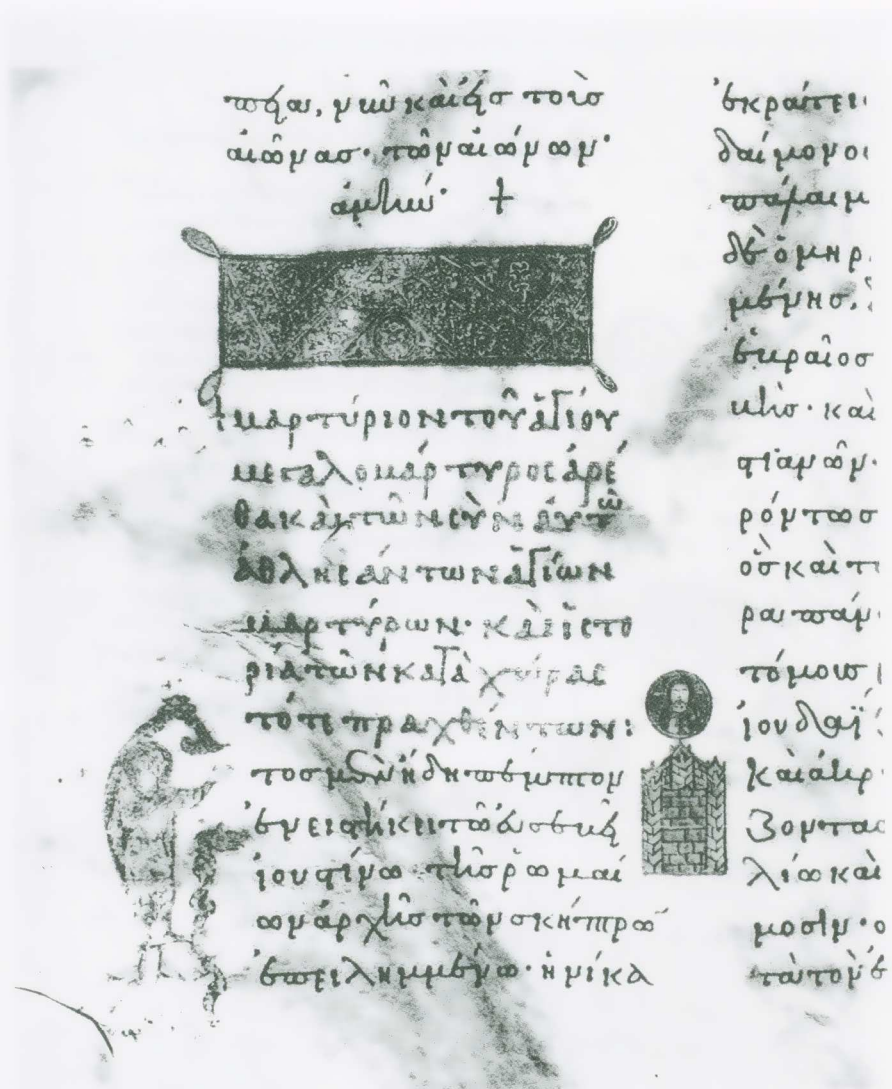 νῦν καὶ εἰς τοὺσ
αἰῶνασ· τῶν αἰώνων·
ἀμήν· +
+ ΜΑΡΤΎΡΙΟΝ ΤΟΥ͂ ἉΓΊΟΥ
ΜΕΓΑΛΟΜΆΡΤΥΡΟΣ ἈΡΈ
ΘΑ ΚΑῚ ΤΩ͂Ν ΣῪΝ ΑΥ̓ΤΩ͂
ἈΘΛΗΣΆΝΤΩΝ ἉΓΊΩΝ
ΜΑΡΤΎΡΩΝ· ΚΑῚ ἹΣΤΟ
ΡΊΑ ΤΩ͂Ν ΚΑΤᾺ ΧΏΡΑΣ
ΤΌΤΕ ΠΡΑΧΘΈΝΤΩΝ:
Ἔτοσ μὲν ἤδη πέμπτον
ἐνειστήκει τῶ εὐσεβεῖ
ἰουστίνω τῆσ ῥωμαί
ων ἀρχῆσ τῶν σκήπτρω
ἐπειλημμένω· ἡνίκα
ἐκράτει
δαίμονο
πάλαι μ
δὲ ὁμηρ
μένησ,
κῆσ· καὶ
στιανῶν·
ρόντωσ
ὃσ καὶ τ
ρα πάν
τόμουσ
ἰουδαϊ
ζοντασ
λίω καὶ
μοσὶν· ο